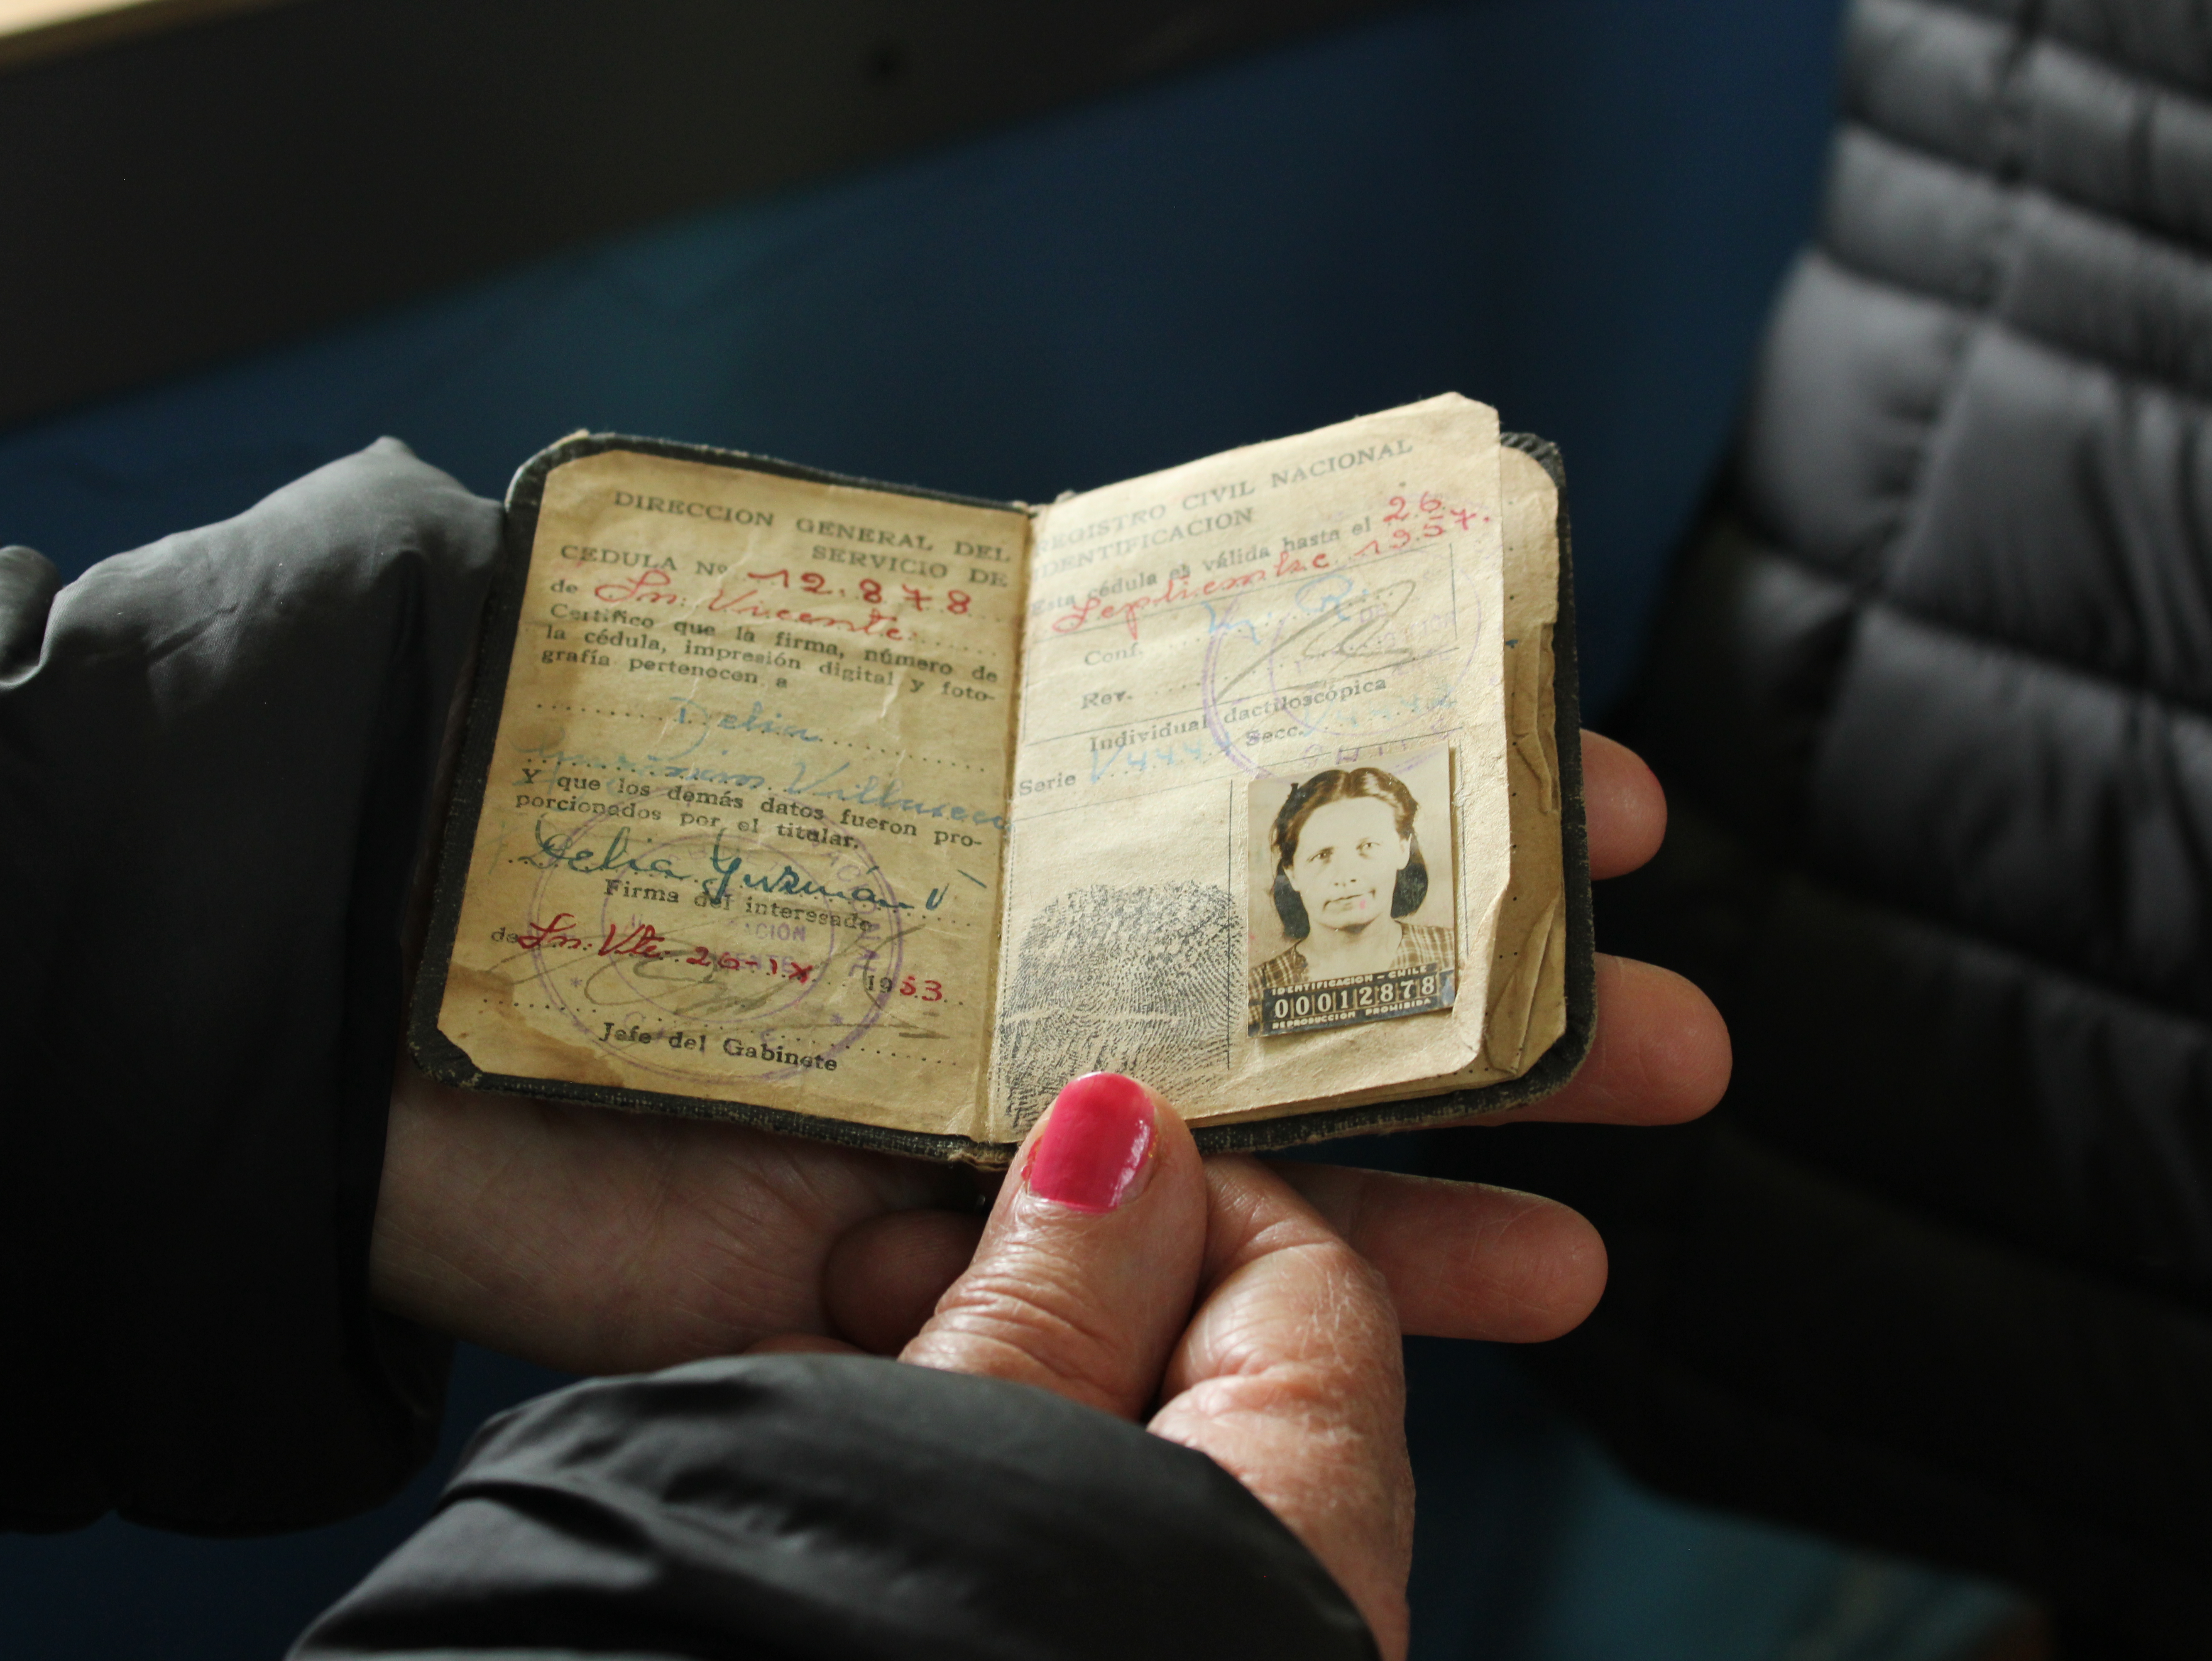 DIRECCION GENERAL DEL
SERVICIO DE
CEDULA Nº 12.878
de Sn. Vicente
Certifico que la firma, número de
la cédula, impresión digital y foto-
grafía pertenecen a
Delia
Y que los demás datos fueron pro-
porcionados por el titular.
Delia Guzmán V
Firma del interesado
de Sn. Vte 26-IX 1953
Jefe del Gabinete
REGISTRO CIVIL NACIONAL
IDENTIFICACION
Esta cédula es válida hasta el 26
Septiembre 1957.
Conf.
Rev.
Individual dactiloscópica
Serie Secc.
IDENTIFICACION - CHILE
00012878
REPRODUCCION PROHIBIDA